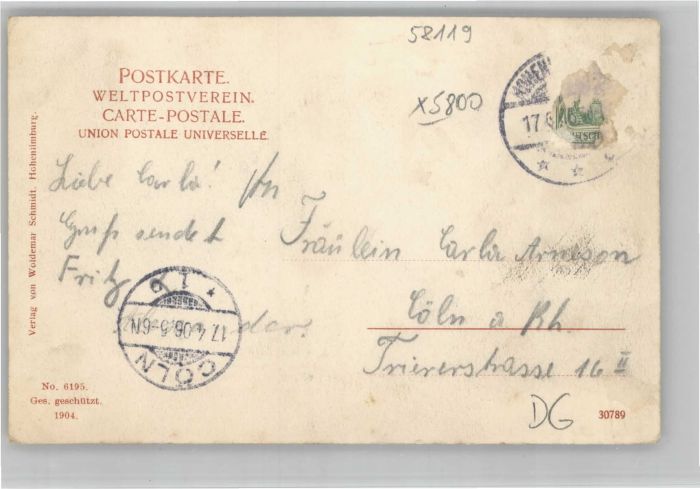 58119
POSTKARTE.
WELTPOSTVEREIN.
CARTE-POSTALE.
UNION POSTALE UNIVERSELLE.
x5800
HOHEN
17.
Verlag von Woldemar Schmidt, Hohenlimburg.
Liebe Carla!
Gruß sendet
Fritz
An
Fräulein Carla Arneson
Cöln a Rh.
Triererstrasse 16 II
CÖLN
17.4.06.5-6N
* 1
No. 6195.
Ges. geschützt.
1904.
DG
30789